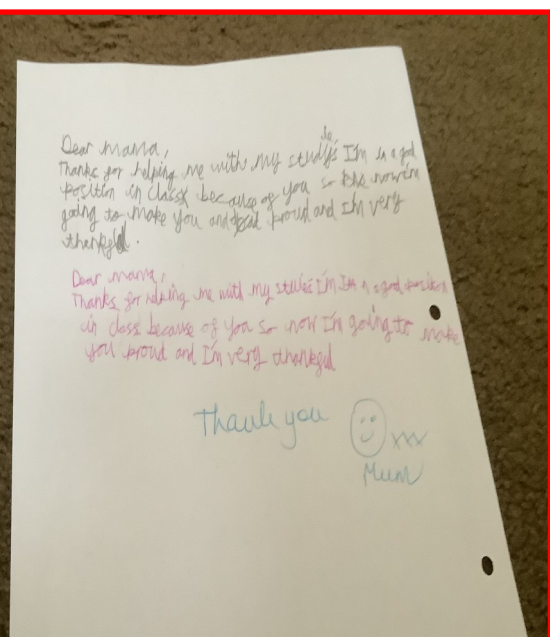 Dear mama,
Thanks for helping me with my studies I'm in a god
position in class because of you so now im
going to make you and proud and I'm very
thankful.
Dear mama,
Thanks for helping me with my studies I'm Im n a good position
in class because of you so now I'm going to make
you proud and I'm very thankful
Thank you
xxx
Mum